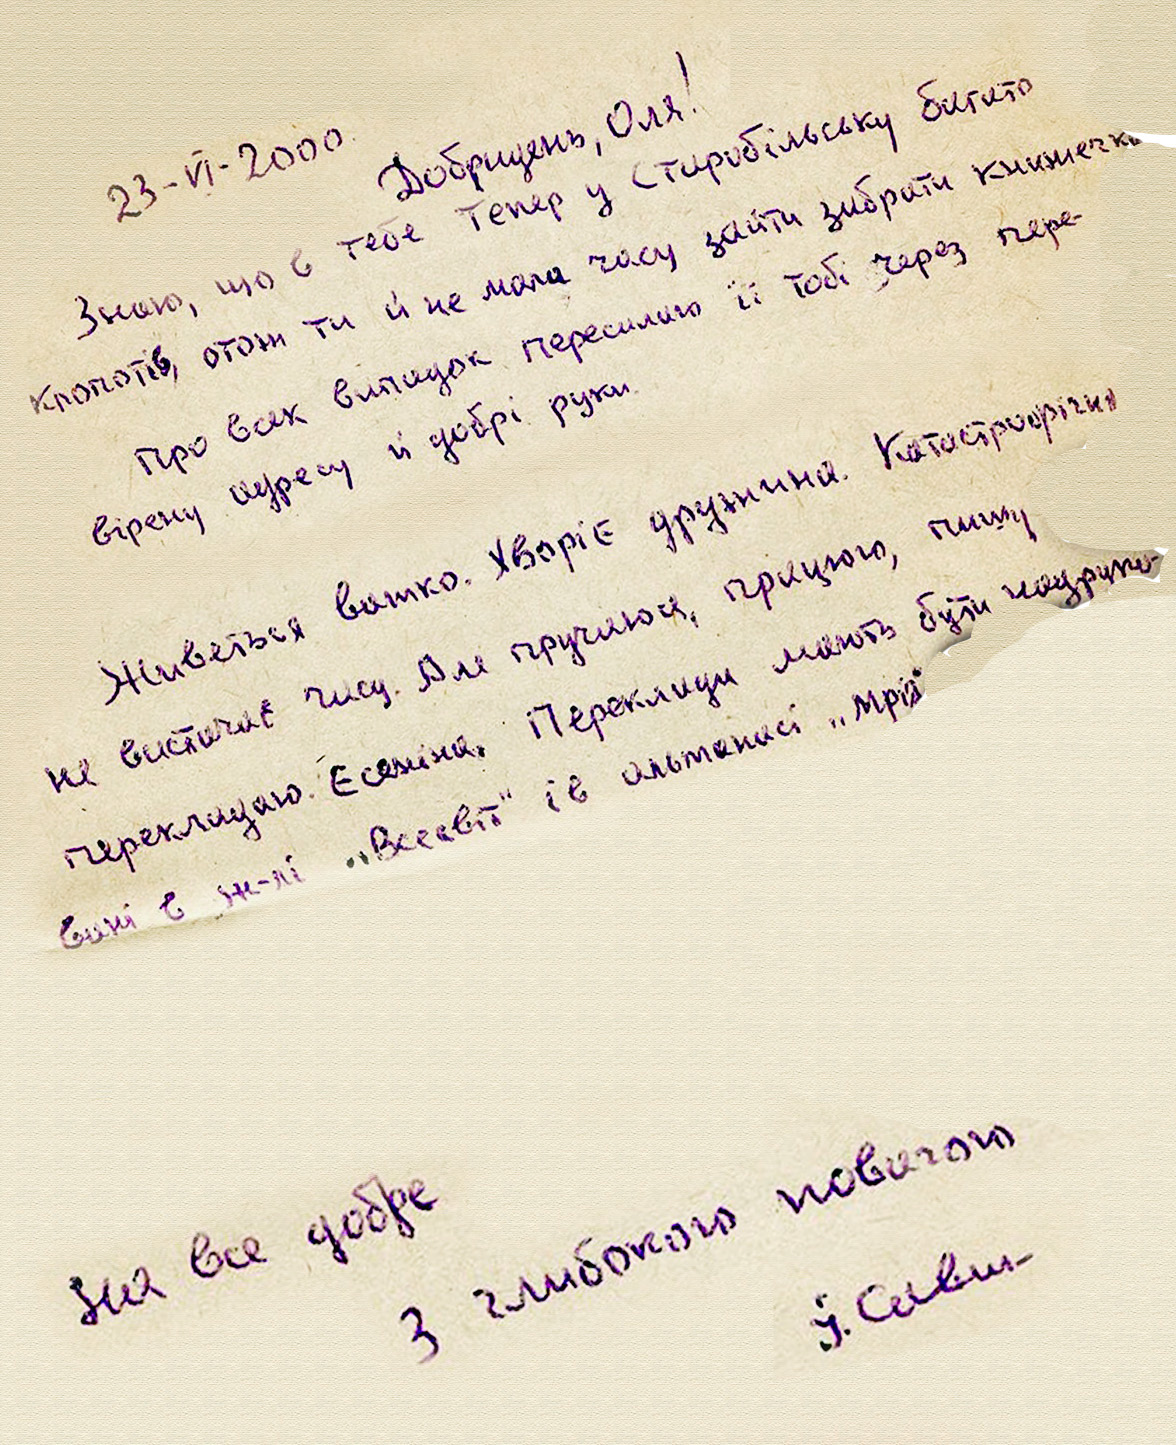 23-VI-2000.
Добридень, Оля!
Знаю, що в тебе тепер у Старобільську багато
клопотів, отож ти й не мала часу зайти забрати книжечку
Про всяк випадок пересилаю її тобі через пере-
вірену адресу й добрі руки.
Живеться важко. Хворіє дружина. Катастрофічно
не вистачає часу. Але пручаюся, працюю, пишу
перекладаю. Єсеніна. Переклади мають бути надруко-
вані в ж-лі „Всесвіт" і в альманасі „Мрія"
На все добре
З глибокою повагою